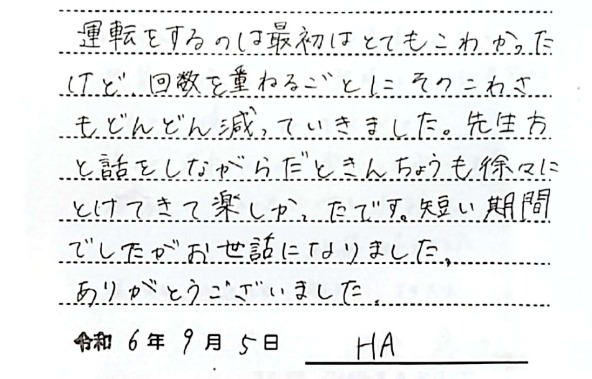 運転をするのは最初はとてもこわかった
けど、回数を重ねるごとにそのこわさ
もどんどん減っていきました。先生方
と話をしながらだときんちょうも徐々に
とけてきて楽しかったです。短い期間
でしたがお世話になりました。
ありがとうございました。
令和 6年 9月 5日 HA